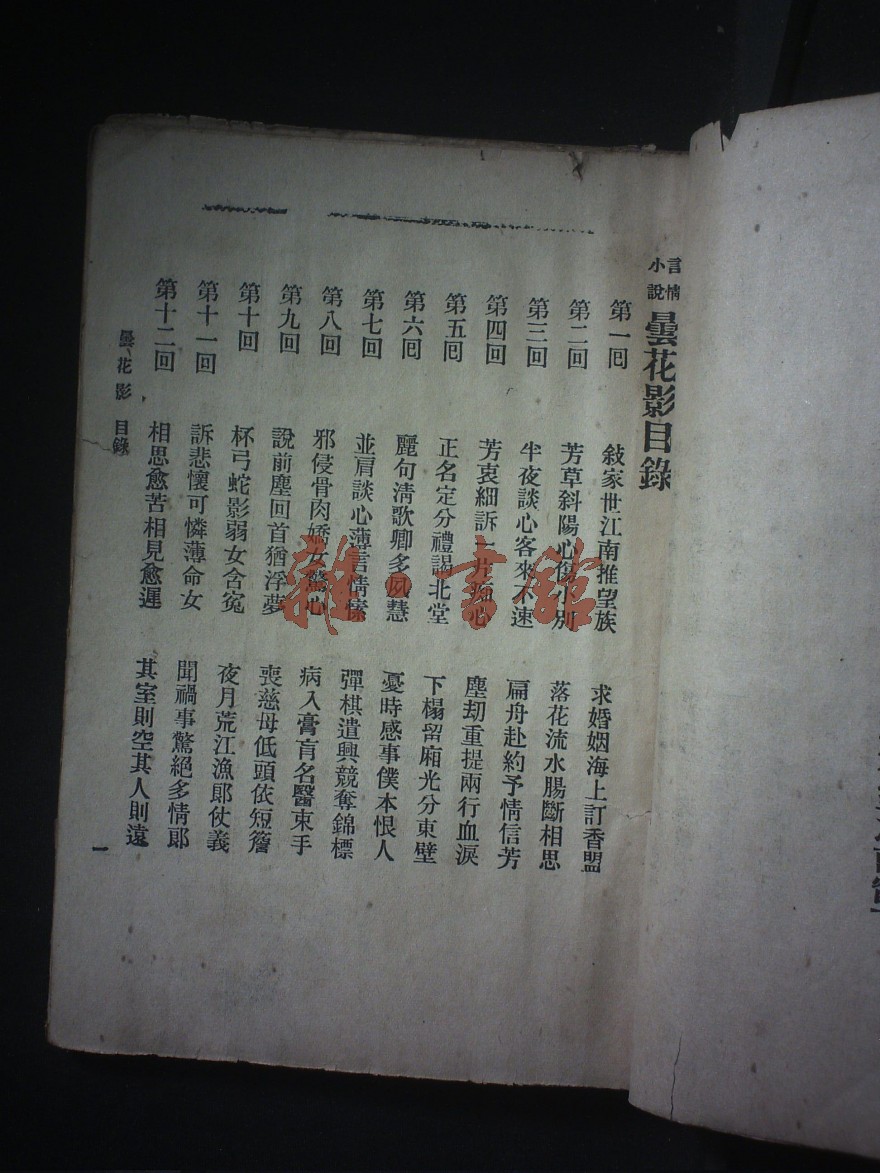 言情小說 曇花影目錄
第一囘 敍家世江南推望族 求婚姻海上訂香盟
第二回 芳草斜陽心傷小別 落花流水腸斷相思
第三回 半夜談心客來不速 扁舟赴約予情信芳
第四回 芳衷細訴一片痴心 塵劫重提兩行血淚
第五囘 正名定分禮謁北堂 下榻留廂光分東壁
第六囘 麗句淸歌卿多夙慧 憂時感事僕本恨人
第七回 並肩談心薄言情愫 彈棋遣興競奪錦標
第八回 邪侵骨肉嬌女驚心 病入膏肓名醫束手
第九回 說前塵回首猶浮夢 喪慈母低頭依短簷
第十回 杯弓蛇影弱女含寃 夜月荒江漁郞仗義
第十一回 訴悲懷可憐薄命女 聞禍事驚絕多情郞
第十二回 相思愈苦相見愈遲 其室則空其人則遠
曇花影 目錄
一
雜·書館